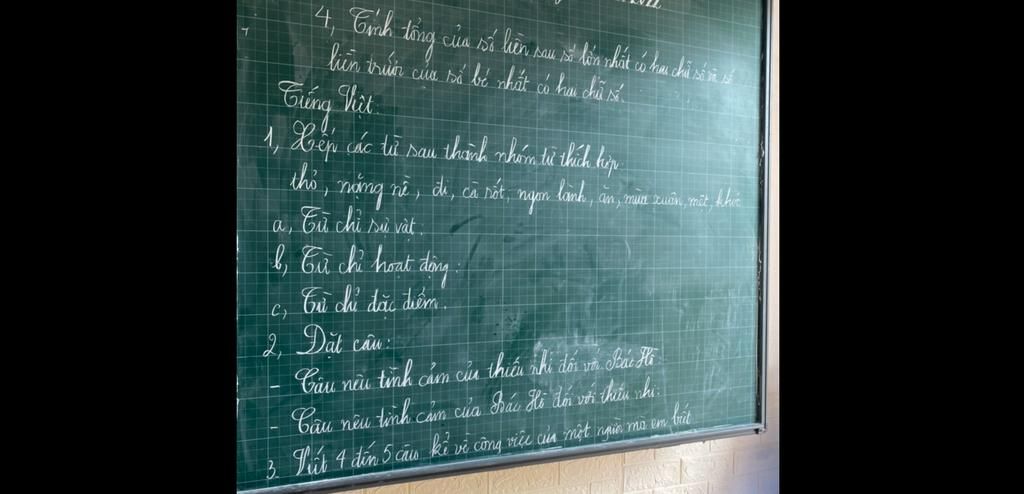 4, Tính tổng của số liền sau số lớn nhất có hai chữ số và số
liền trước của số bé nhất có hai chữ số.
Tiếng Việt:
1, Xếp các từ sau thành nhóm từ thích hợp:
thỏ, nặng nề, đi, cà rốt, ngon lành, ăn, mùa xuân, mệt, khóc
a, Từ chỉ sự vật:
b, Từ chỉ hoạt động:
c, Từ chỉ đặc điểm:
2, Đặt câu:
- Câu nêu tình cảm của thiếu nhi đối với Bác Hồ.
- Câu nêu tình cảm của Bác Hồ đối với thiếu nhi.
3. Viết 4 đến 5 câu kể về công việc của một người mà em biết